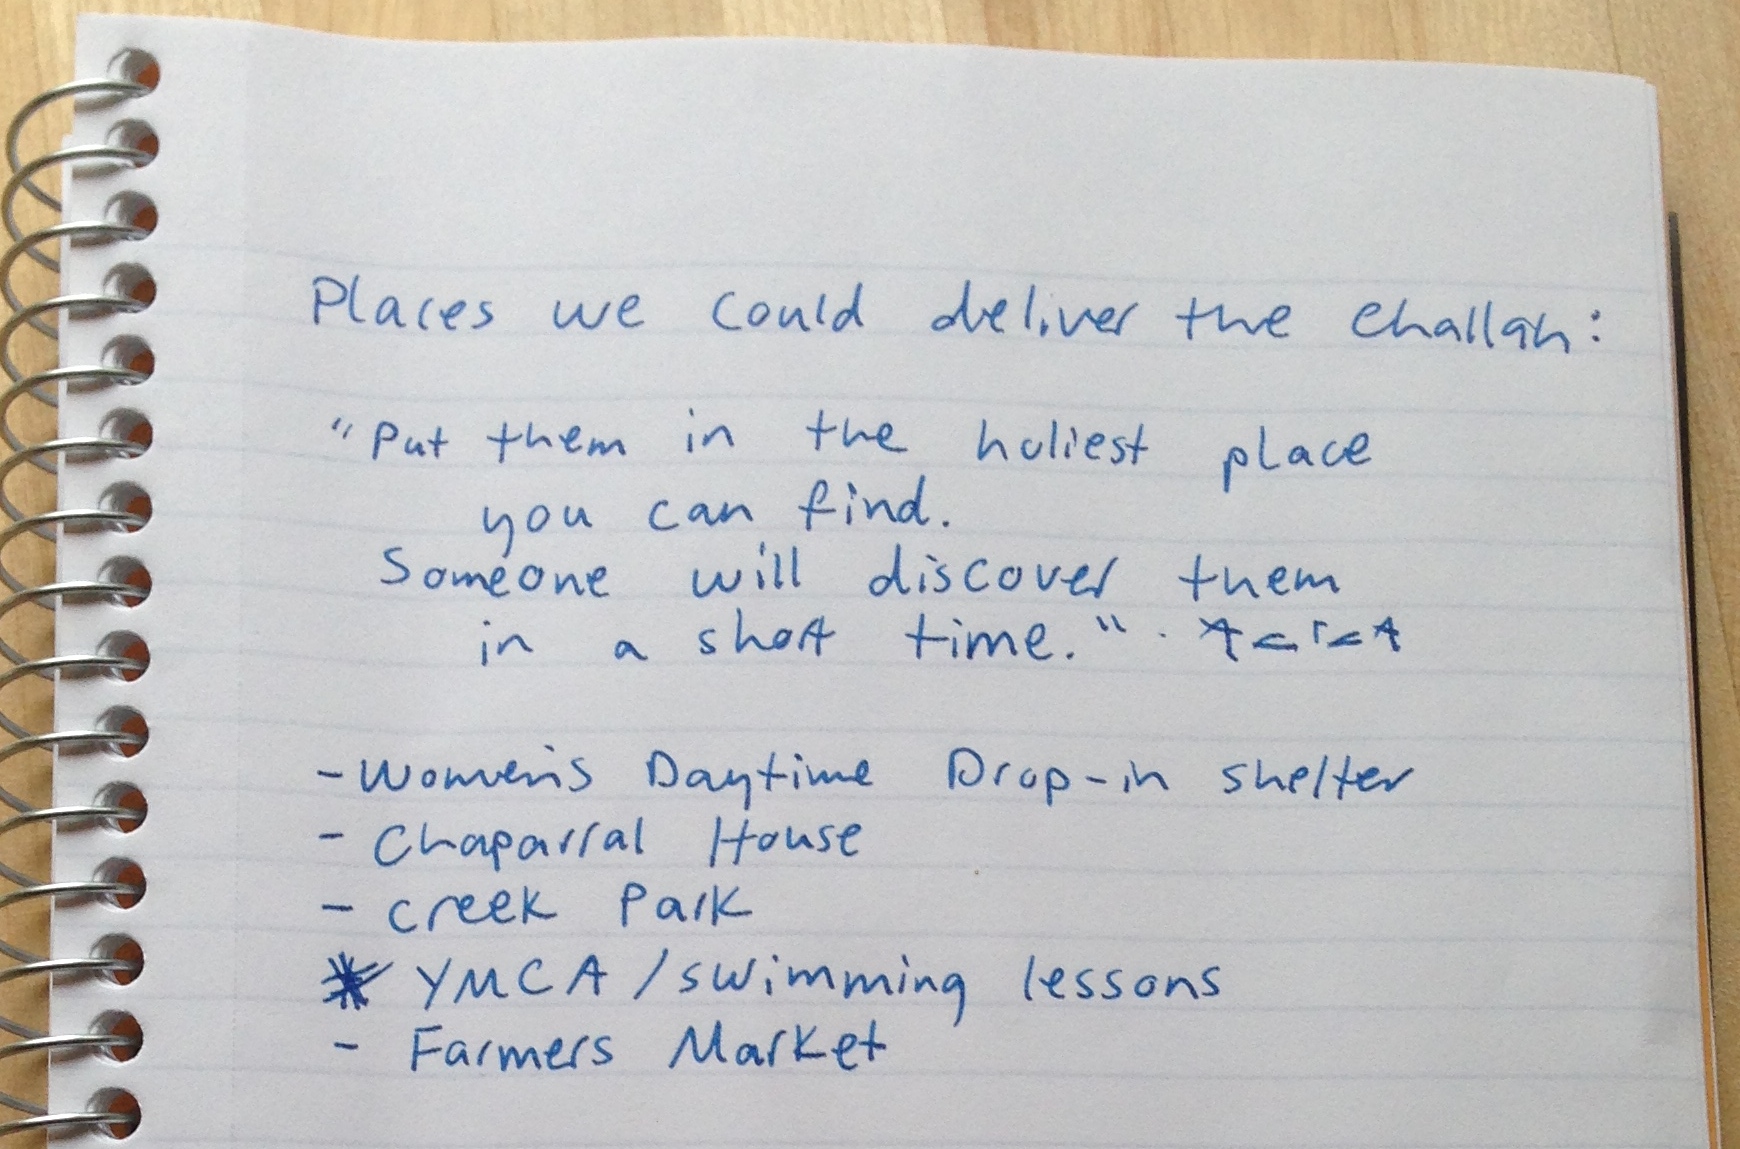 Places we could deliver the challah:
"Put them in the holiest place
you can find.
Someone will discover them
in a short time."
-Women's Daytime Drop-in shelter
- Chaparral House
- Creek Park
* YMCA/swimming lessons
- Farmers Market